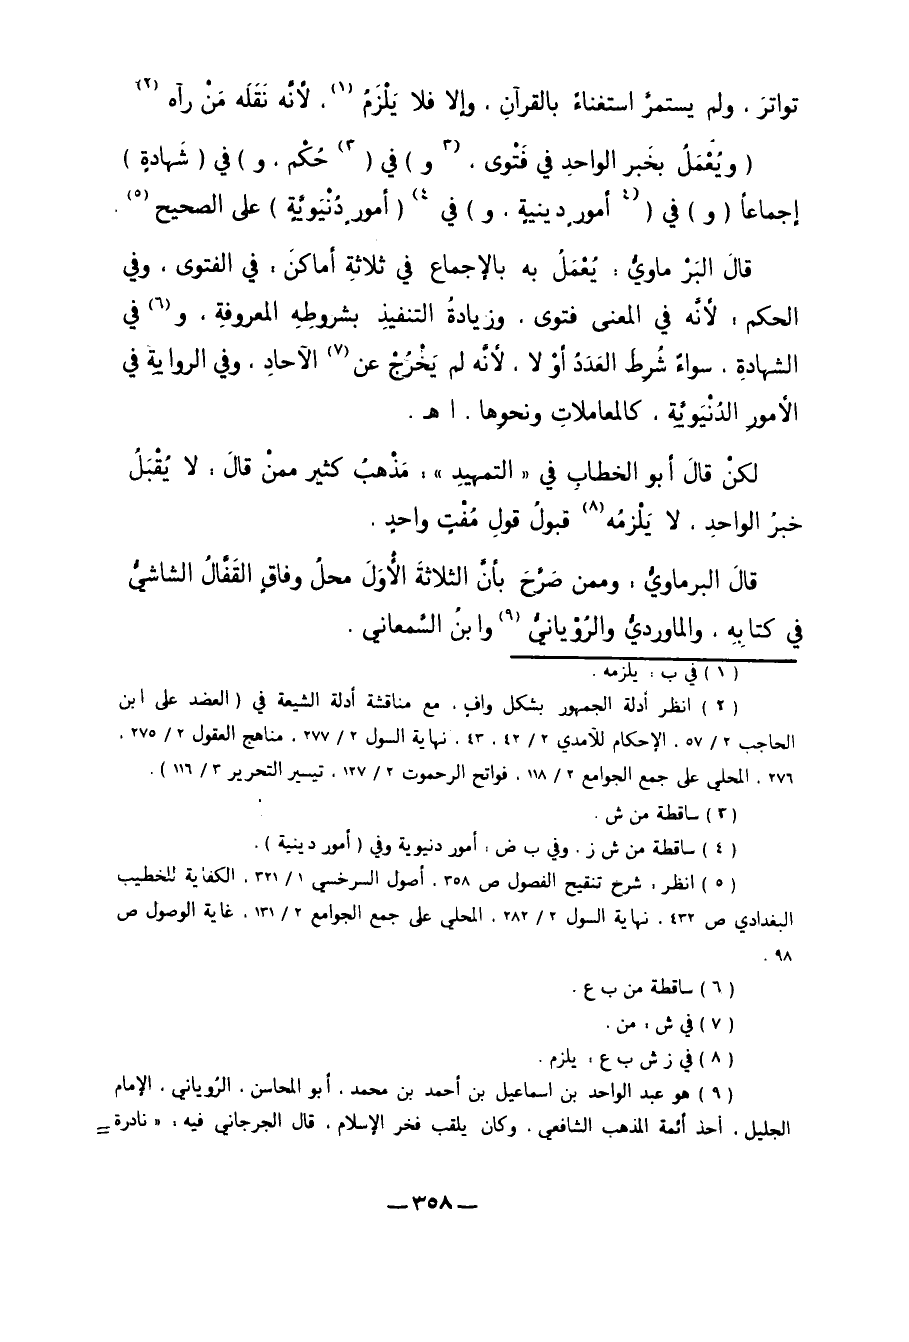 تواترَ ، ولم يستمرَّ استغناءً بالقرآنِ ، وإلا فلا يَلْزَمُ (١) ، لأنَّه نَقَلَه مَنْ رآه (٢)
( ويُعْمَلُ بخَبر الواحدِ في فَتْوى ، (٣ و ) في ( ٣) حُكْم ، و ) في ( شَهادةٍ )
إجماعاً ( و ) في ( (٤ أمورٍ دينيةٍ ، و ) في ٤) ( أمورٍ دُنْيَويَّةٍ ) على الصحيح (٥) .
قالَ البَرْ ماويُّ : يُعْمَلُ به بالإجماع في ثلاثةِ أماكنَ : في الفتوى ، وفي
الحكم : لأنَّه في المعنى فتوى ، وزيادةُ التنفيذِ بشروطِهِ المعروفةِ ، و (٦) في
الشهادةِ ، سواءً شُرِطَ العَدَدُ أوْ لا ، لأنَّه لم يَخْرُجْ عن (٧) الآحادِ ، وفي الروايةِ في
الأمورِ الدُنْيَويَّةِ ، كالمعاملاتِ ونحوِها . ا هـ .
لكنْ قالَ أبو الخطابِ في « التمهيدِ » : مَذْهبُ كثيرٍ ممنْ قالَ : لا يُقْبَلُ
خبرُ الواحدِ ، لا يَلْزمُه (٨) قبولُ قولِ مُفْتٍ واحدٍ .
قالَ البرماويُّ : وممن صَرَّحَ بأنَّ الثلاثةَ الأُولَ محلُ وفاقٍ القَفَّالُ الشاشيُّ
في كتابِهِ ، والماورديُّ والرُّوْيانيُّ (٩) وابنُ السَّمعاني .
( ١ ) في ب : يلزمه .
( ٢ ) انظر أدلة الجمهور بشكل وافٍ ، مع مناقشة أدلة الشيعة في ( العضد على ابن
الحاجب ٢ / ٥٧ ، الإحكام للآمدي ٢ / ٤٢ ، ٤٣ ، نهاية السول ٢ / ٢٧٧ ، مناهج العقول ٢ / ٢٧٥ ،
٢٧٦ ، المحلي على جمع الجوامع ٢ / ١١٨ ، فواتح الرحموت ٢ / ١٢٧ ، تيسير التحرير ٣ / ١١٦ ) .
( ٣ ) ساقطة من ش .
( ٤ ) ساقطة من ش ز . وفي ب ض : أمور دنيوية وفي ( أمور دينية ) .
( ٥ ) انظر : شرح تنقيح الفصول ص ٣٥٨ ، أصول السرخسي ١ / ٣٢١ ، الكفاية للخطيب
البغدادي ص ٤٣٢ ، نهاية السول ٢ / ٢٨٢ ، المحلي على جمع الجوامع ٢ / ١٣١ ، غاية الوصول ص
٩٨ .
( ٦ ) ساقطة من ب ع .
( ٧ ) في ش : من .
( ٨ ) في ز ش ب ع : يلزم .
( ٩ ) هو عبد الواحد بن اسماعيل بن أحمد بن محمد ، أبو المحاسن ، الرُوياني ، الإمام
الجليل ، أحذ أئمة المذهب الشافعي ، وكان يلقب فخر الإسلام ، قال الجرجاني فيه : « نادرة =
ــ ٣٥٨ ــ